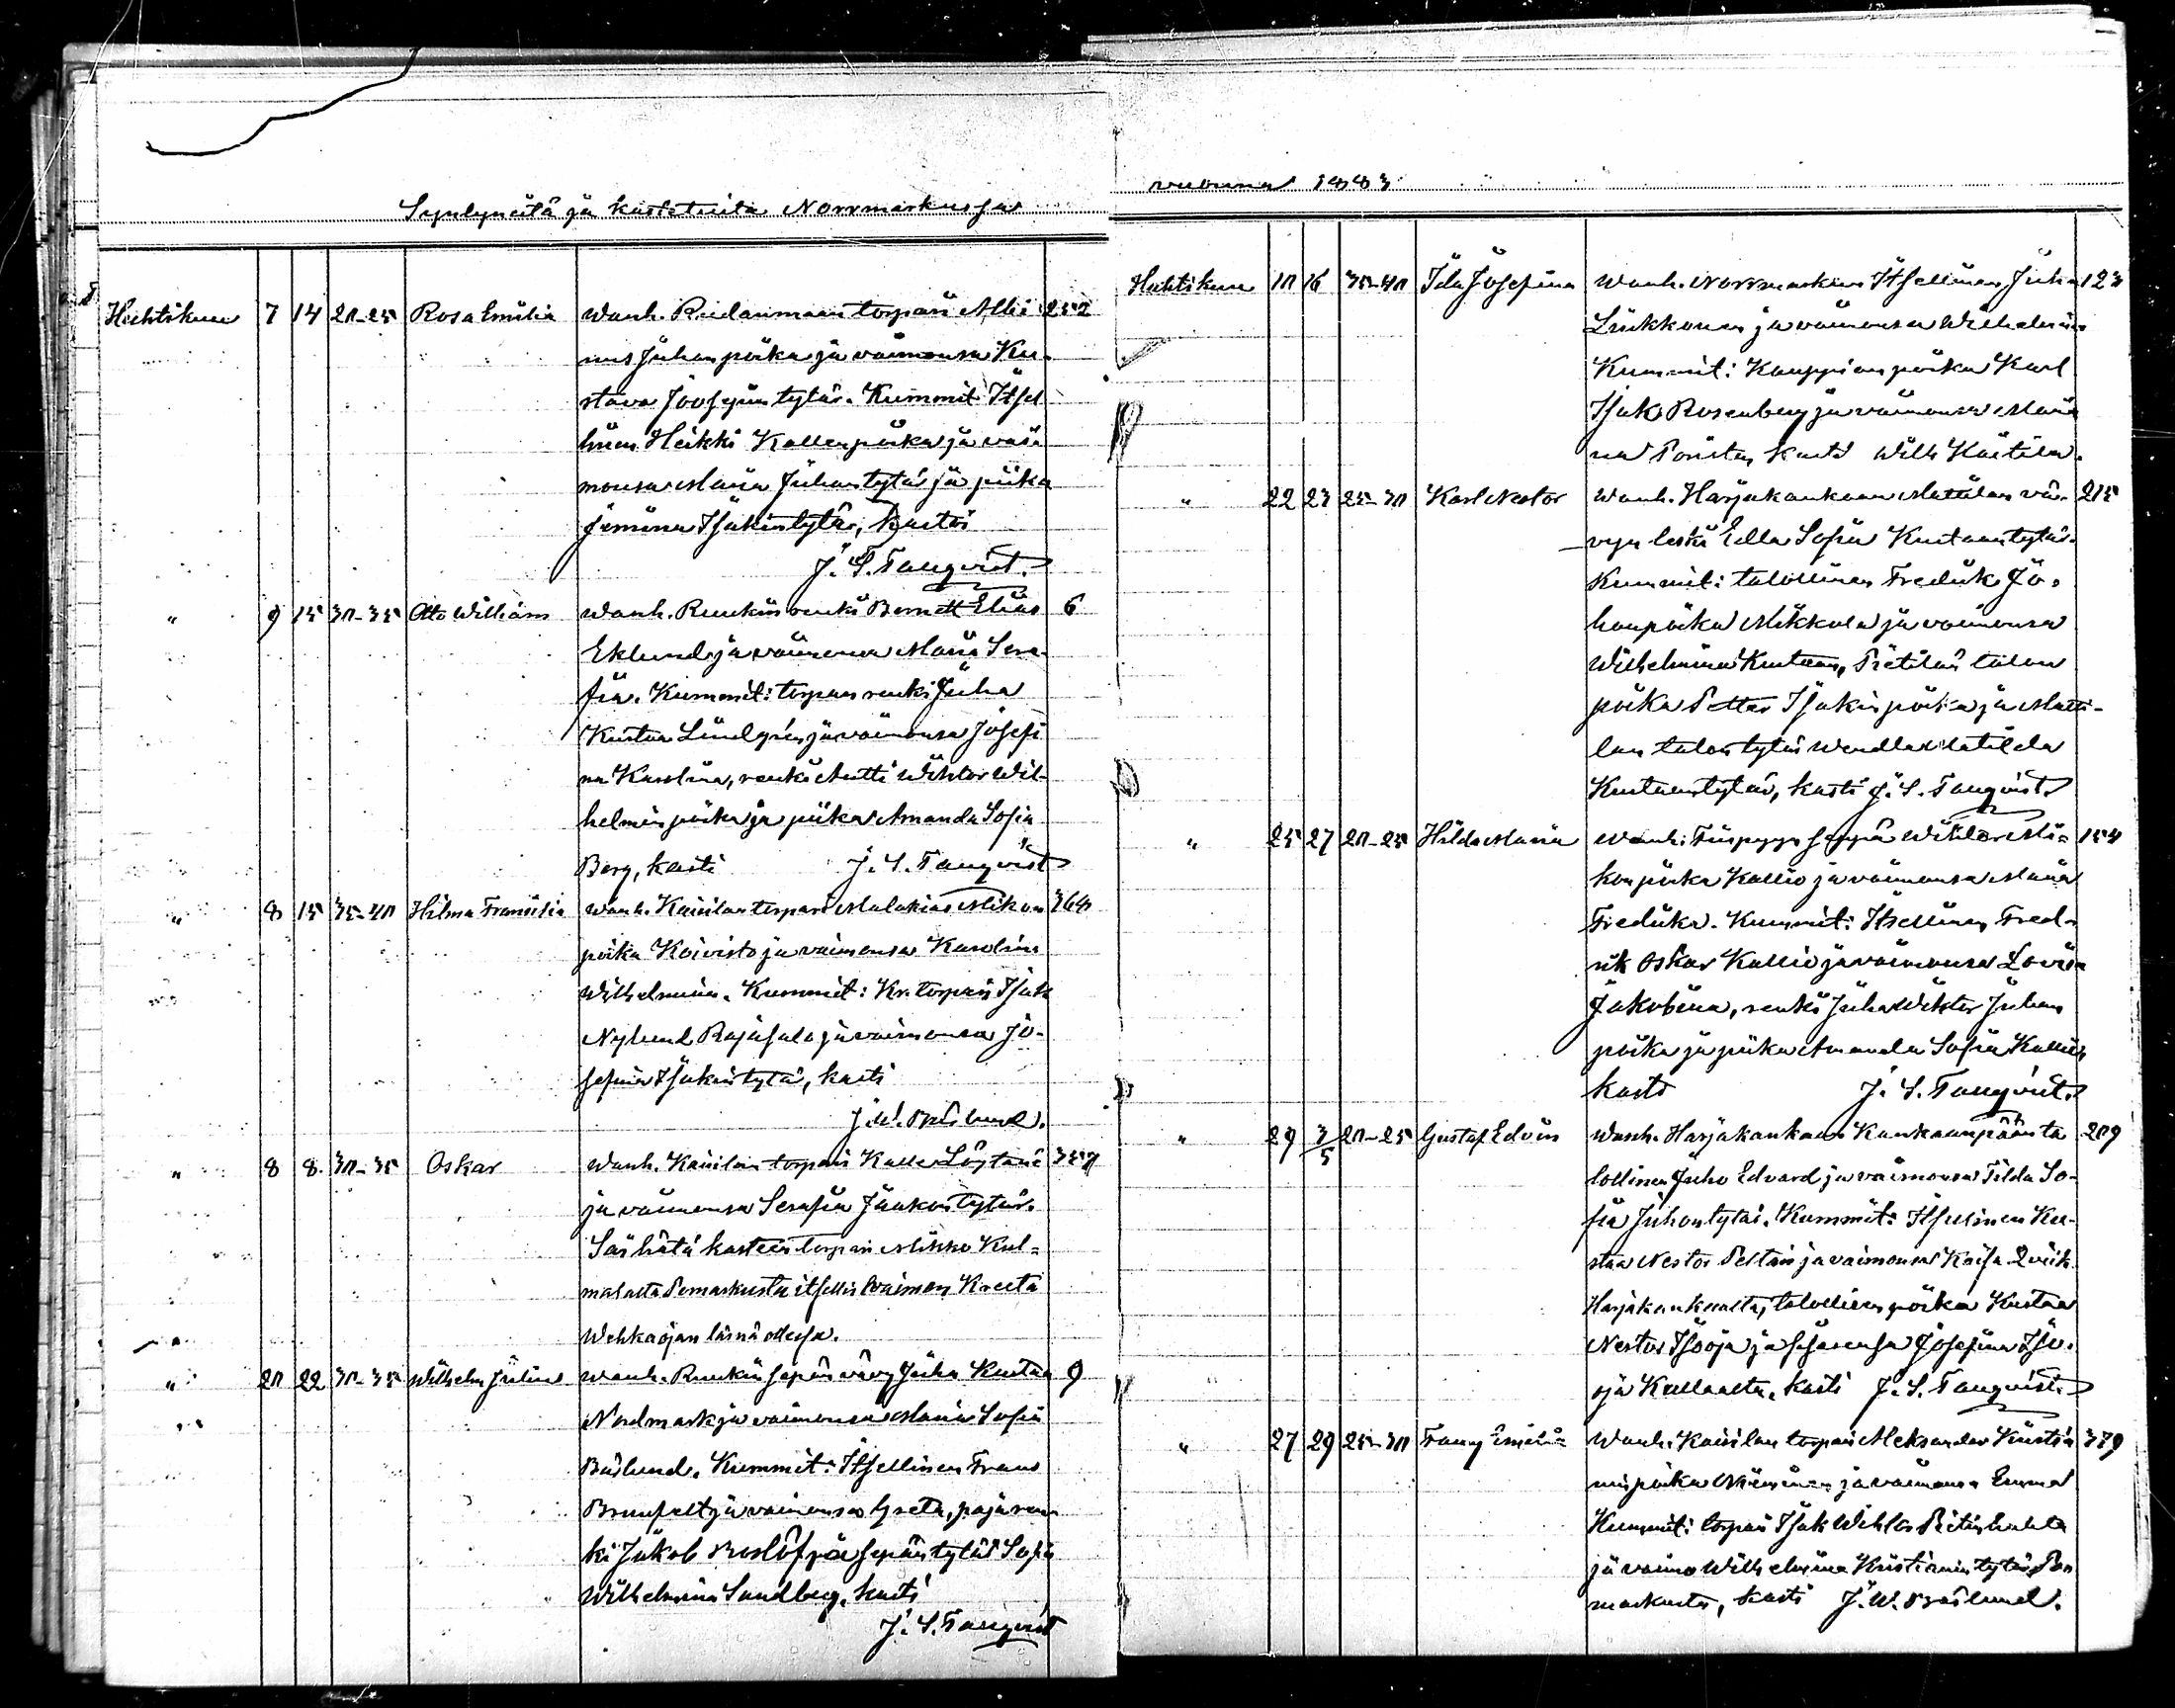 Syntyneitä ja kastetuita Norrmarkussa
Huhtikuu 7 14 20-25 Rosa Emilia Wanh. Rudanmaan torpari Albi 257
nus Juhanpoika ja vaimonsa Ku-
stava Joosepintytär. Kummit Itsel
linen Heikki Kallenpoika ja vai
monsa Maria Juhantytär ja piika
Jemina Isakintytär, kasti
J. S. Tanqvist.
" 9 15 30-35 Otto William Wanh. Ruukin renki Bernett Elias 6
Eklund ja vaimonsa Maria Sera-
fia. Kummit: torpan renki Juha
Kustaa Lindgrén ja vaimonsa Josefi
na Karolina, renki Antti Wihtor Wil-
helminpoika ja piika Amanda Sofia
Berg, kasti J. S. Tanqvist
" 8 15 35-40 Hilma Fransisia Wanh. Kairilan torpari Malakias Mikon 364
poika Koivisto ja vaimonsa Karolina
Wilhelmina. Kummit: Kr. torpari Isak
Nylund Rajasalo ja vaimonsa Jo-
sefina Isakintytär, kasti
J. W. Båslund.
" 8 8 30-35 Oskar Wanh. Kairilan torpari Kalle Löytäni 357
ja vaimonsa Serafia Jaakontytär.
Sai hätä kasteen torpari Mikko Kul=
malaita Pomarkusta itsellis vaimon Kreeta
Wehkaojan läsnä ollessa.
" 20 22 30-35 Wilhelm Julius Wanh. Ruukin sepän vävy Juha Kustaa 9
Nordmark ja vaimonsa Maria Sofia
Båslund. Kummit: Itsellinen Frans
Brunfelt ja vaimonsa Greta, paja ren
ki Jakob Roslöf ja sepän tytär Sofia
Wilhelmina Sandberg, kasti
J. S. Tanqvist
vuonna 1883
Huhtikuu 10 16 35-40 Ida Josefina Wanh. Norrmarkun Itsellinen Juha 123
Liukkonen ja vaimonsa Wilhelmina
Kummit: Kauppiaan poika Karl
Isak Rosenberg ja vaimonsa Maria
na Porista, kasti Wilh Kastila.
" 22 23 25-30 Karl Nestor Wanh. Harjakankaan Mattilan vä- 215
vyn leski Eella Sofia Kustaantytär.
Kummit: talollinen Fredrik Jo-
hanpoika Mikkola ja vaimonsa
Wilhelmina Kustaan, Pietilän talon
poika Petter Isakinpoika ja Matti-
lan talon tytär Wendla Matilda
Kustaantytär, kasti J. S. Tanqvist.
" 25 27 20-25 Hilda Maria Wanh. Finpyyn seppä Wihtor Mi- 154
konpoika Kallio ja vaimonsa Maria
Fredrika. Kummit: Itsellinen Fred-
rik Oskar Kallio ja vaimonsa Lovisa
Jakobina, renki Juha Wihtor Juhan
poika ja piika Amanda Sofia Kallio,
kasti J. S. Tanqvist.
" 29 3/5 20-25 Gustaf Edvin Wanh. Harjakankaan Kankaanpään ta 209
lollinen Juho Edvard ja vaimonsa Tilda So-
fia Juhontytär. Kummit: Itsellinen Ku-
staa Nestor Peltari ja vaimonsa Kaisa Qvick
Harjakankaalta, talollisen poika Kustaa
Nestor Isooja ja sisarensa Josefina Iso-
oja Kullaalta, kasti J. S. Tanqvist.
" 27 29 25-30 Frans Emil Wanh. Kairilan torpari Aleksander Kustia 379
ninpoika Niininen ja vaimonsa Emma
Kummit: torpari Isak Wihtor Pietinhalta
ja vaimo Wilhelmina Kristianintytär Po
markusta, kasti J. W. Båslund.